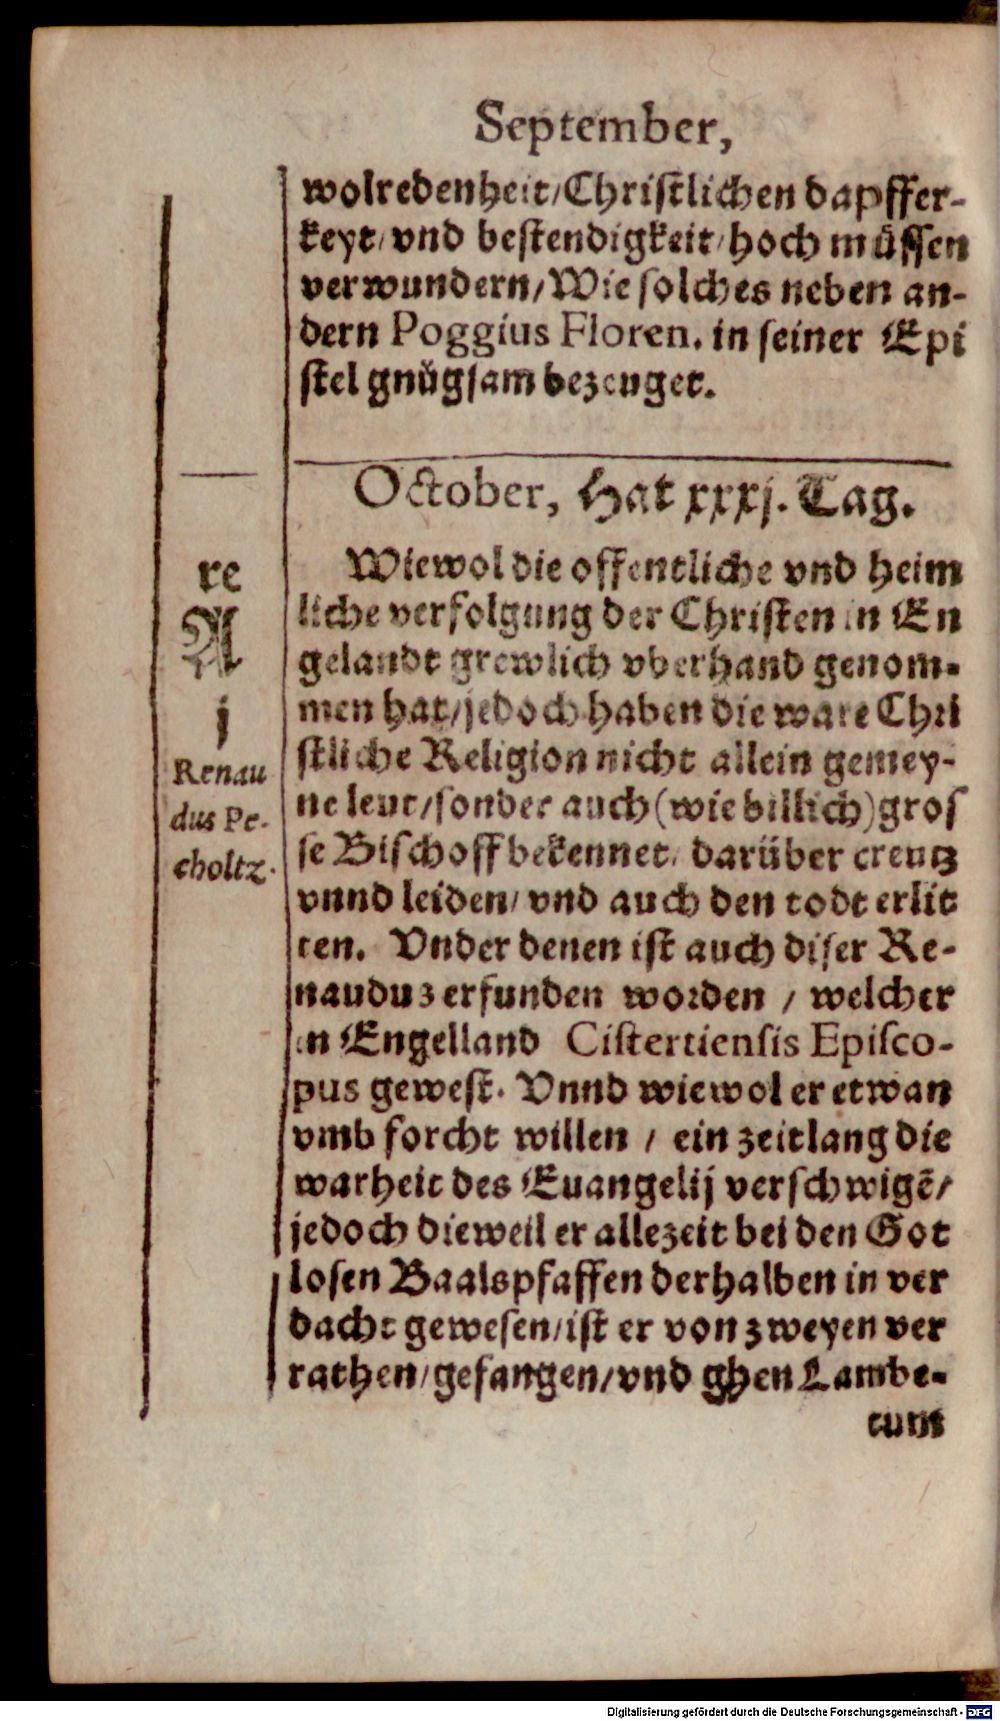 September,
wolredenheit/Christlichen dapffer-
keyt/vnd bestendigkeit/hoch müssen
verwundern/Wie solches neben an-
dern Poggius Floren. in seiner Epi
stel gnůgsam bezeuget.
October, Hat xxxj. Tag.
re
A
j
Renau
dus Pe-
choltz.
Wiewol die offentliche vnd heim
liche verfolgung der Christen in En
gelandt grewlich vberhand genom-
men hat/jedoch haben die ware Chri
stliche Religion nicht allein gemey-
ne leut/sonder auch (wie billich) gros
se Bischoff bekennet/ darüber creutz
vnnd leiden/ vnd auch den todt erlit
ten. Vnder denen ist auch diser Re-
nauduz erfunden worden / welcher
in Engelland Cistertiensis Episco-
pus gewest. Vnnd wiewol er etwan
vmb forcht willen / ein zeitlang die
warheit des Euangelij verschwigē/
jedoch dieweil er allezeit bei den Got
losen Baalspfaffen derhalben in ver
dacht gewesen/ist er von zweyen ver
rathen/gefangen/vnd ghen Lambe-
tum
Digitalisierung gefördert durch die Deutsche Forschungsgemeinschaft - DFG